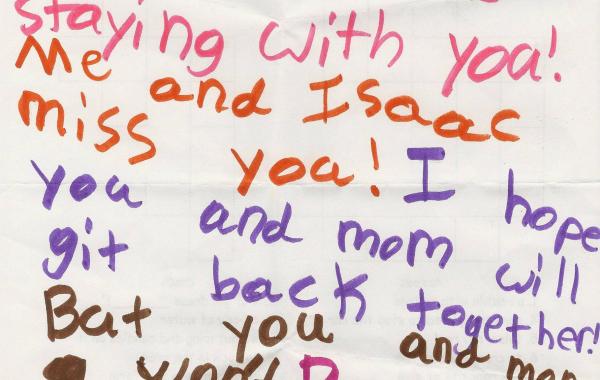 staying with you!
Me and Isaac
miss you! I hope
you and mom will
git back together!
But you and mom